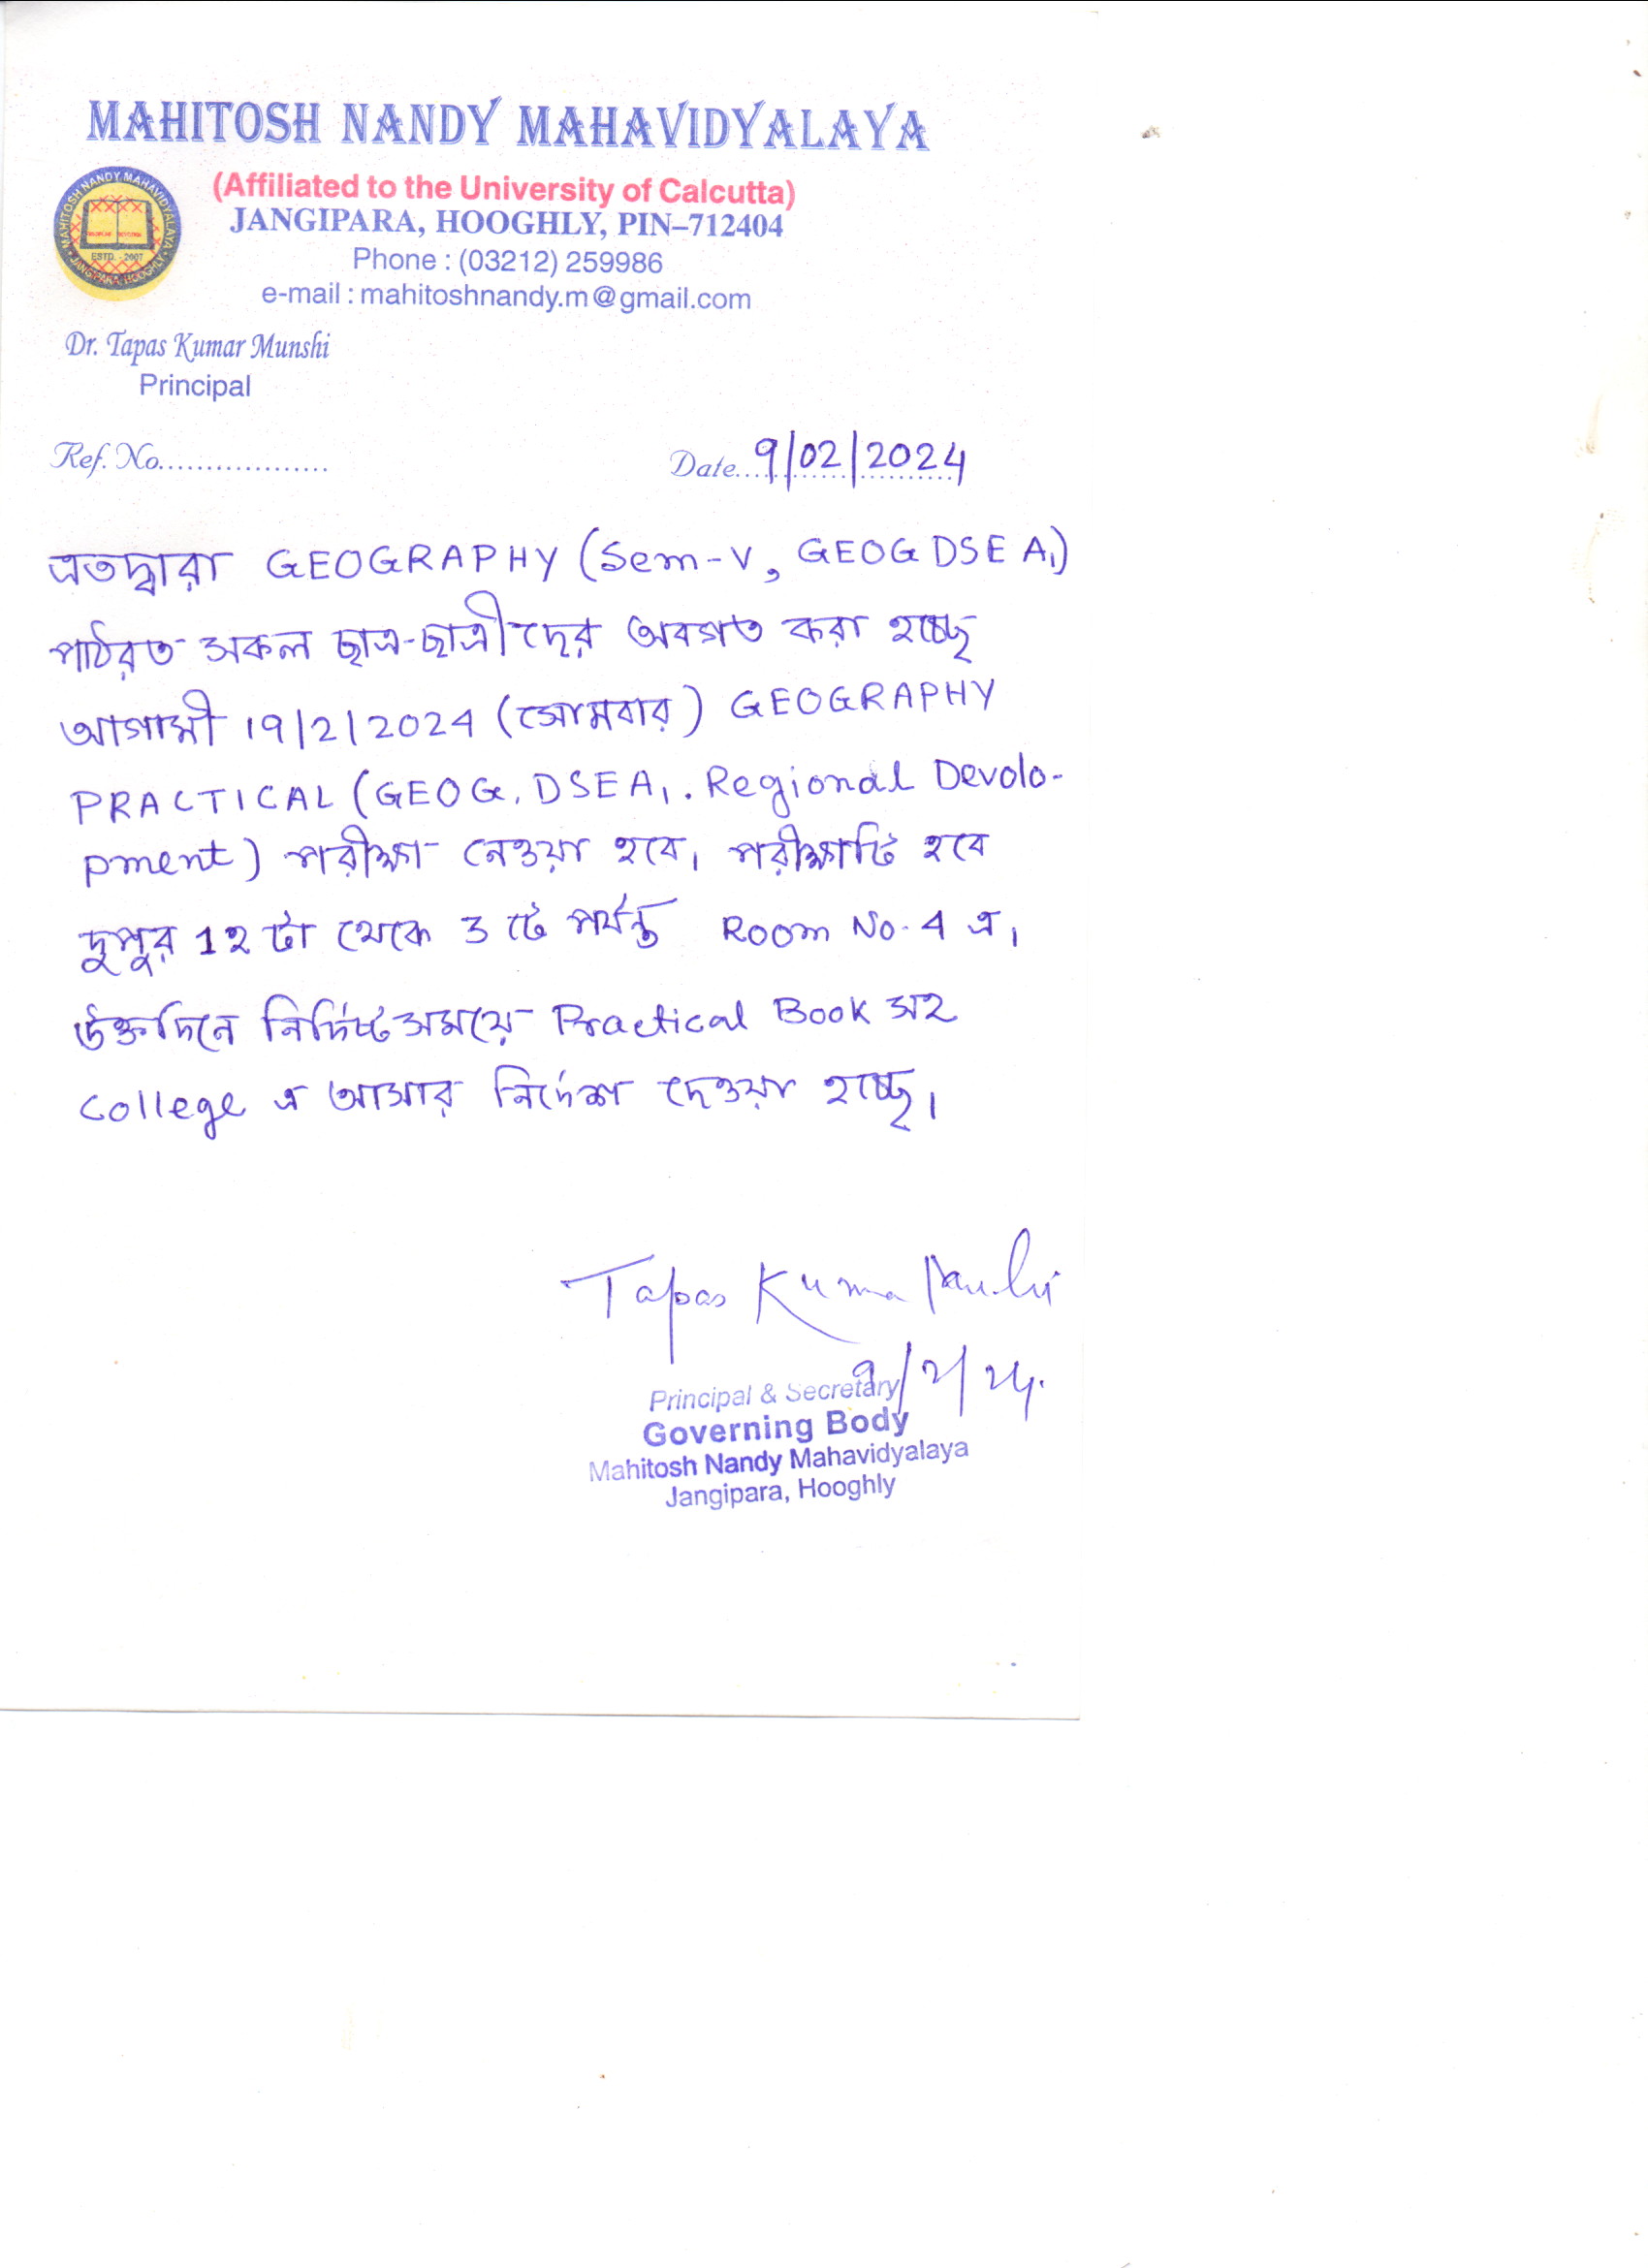 MAHITOSH NANDY MAHAVIDYALAYA
(Affiliated to the University of Calcutta)
JANGIPARA, HOOGHLY, PIN–712404
Phone : (03212) 259986
e-mail : mahitoshnandy.m@gmail.com
MAHITOSH NANDY MAHAVIDYALAYA
ESTD. - 2007
JANGIPARA, HOOGHLY
Dr. Tapas Kumar Munshi
Principal
Ref. No.................. Date...9/02/2024
এতদ্বারা GEOGRAPHY (Sem-V, GEOG DSE A1)
পাঠরত সকল ছাত্র-ছাত্রীদের অবগত করা হচ্ছে
আগামী 19/2/2024 (সোমবার) GEOGRAPHY
PRACTICAL (GEOG. DSEA1. Regional Devolo-
pment) পরীক্ষা নেওয়া হবে। পরীক্ষাটি হবে
দুপুর 12 টা থেকে 3 টে পর্যন্ত Room No. 4 এ।
উক্তদিনে নির্দিষ্টসময়ে Practical Book সহ
College এ আসার নির্দেশ দেওয়া হচ্ছে।
Tapas Kumar Munshi
9/2/24.
Principal & Secretary
Governing Body
Mahitosh Nandy Mahavidyalaya
Jangipara, Hooghly